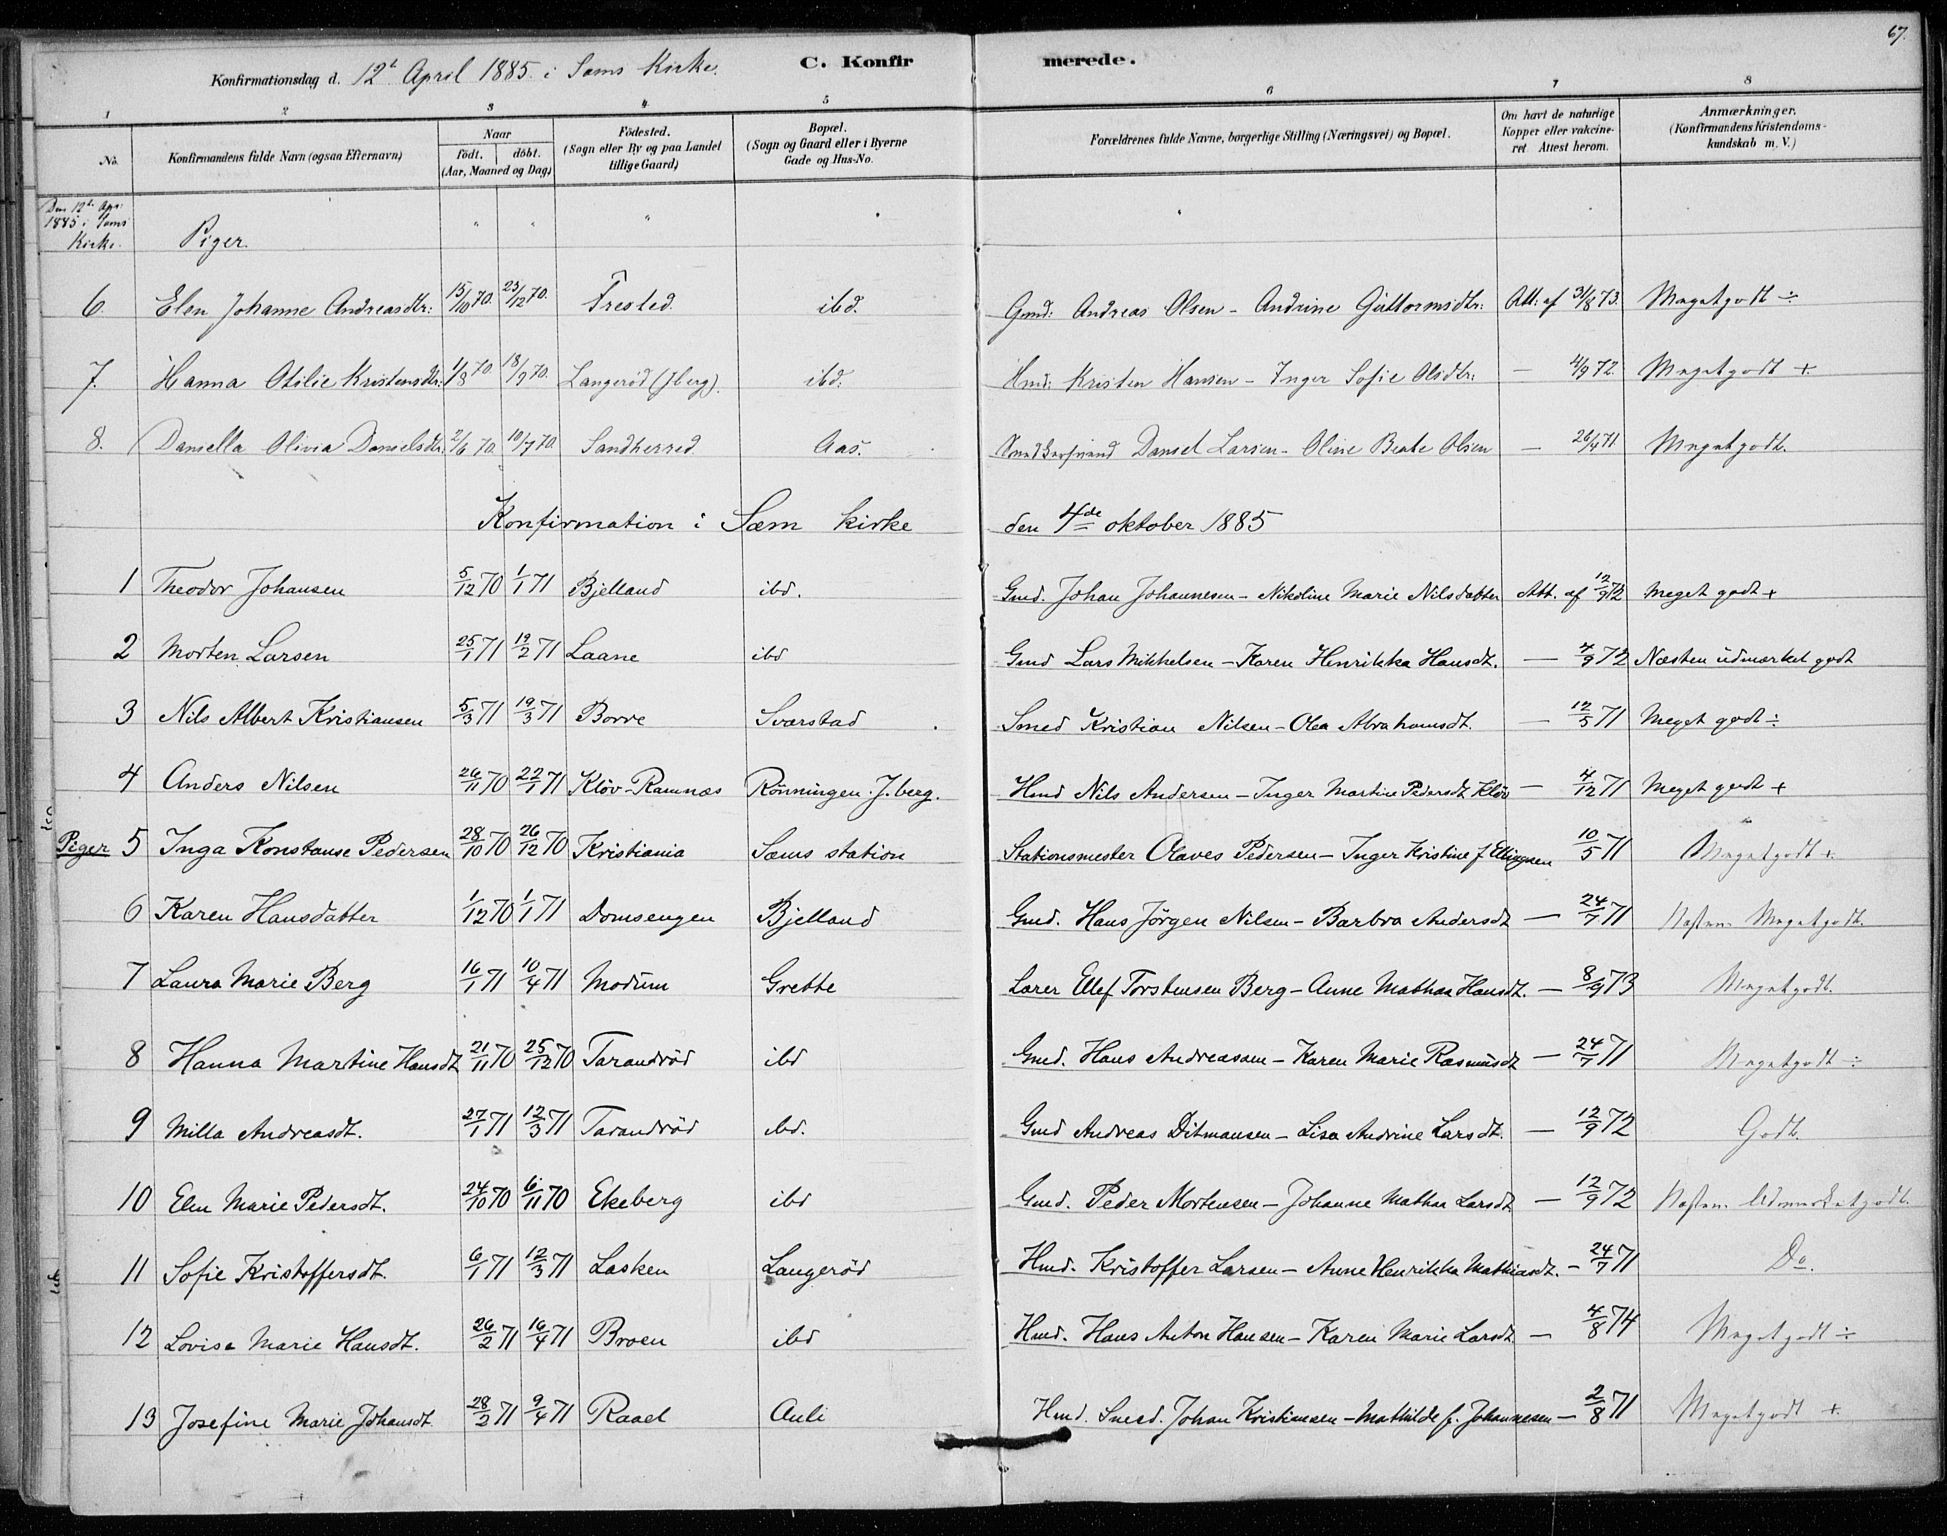 67.
Konfirmationsdag d. 12t April 1885 i Sæms Kirke. C. Konfir merede.
1 2 3 4 5 6 7 8
No. Konfirmandens fulde Navn (ogsaa Efternavn) Naar födt. döbt. (Aar, Maaned og Dag) Födested. (Sogn eller By og paa Landet tillige Gaard) Bopæl. (Sogn og Gaard eller i Byerne Gade og Hus-No. Forældrenes fulde Navne, borgerlige Stilling (Næringsvei) og Bopæl. Om havt de naturlige Kopper eller vakcineret Attest herom. Anmærkninger. (Konfirmandens Kristendomskundskab m. V.)
Den 12te Apr: 1885 i Sæms Kirke. Piger.
6. Elen Johanne Andreasdtr: 15/10 70. 23/12 70. Trested. ibd. Gmd: Andreas Olsen - Andrine Guttormsdtr: Att: af 31/8 73. Megetgodt ÷
7. Hanna Otilie Kristensdtr: 1/8 70 18/9 70. Langerød (Jberg). ibd. Hmd: Kristen Hansen - Inger Sofie Olsdtr: — 4/9 72. Megetgodt +
8. Daniella Olivia Danielsdtr. 2/6 70. 10/7 70. Sandherred Aas. Daniel Larsen - Oline Beate Olsen — 26/4 71 Megetgodt.
Konfirmation i Sæm kirke den 4de oktober 1885
1 Theodor Johansen 5/12 70 1/1 71 Bjelland ibd. Gmd. Johan Johannesen - Nikoline Marie Nilsdatter Att. af 12/9 72 Meget godt +
2 Morten Larsen 25/1 71 19/2 71 Laane ibd Gmd Lars Mikkelsen - Karen Henrikka Hansdt. — 4/9 72 Næsten udmærket godt
3 Nils Albert Kristiansen 5/3 71 19/3 71 Borre Sværstad Smed Kristian Nilsen - Olea Abrahamsdt. — 12/5 71 Meget godt ÷
4 Anders Nilsen 26/11 70 22/1 71 Kløv-Ramnæs Rönningen J.berg. Hmd Nils Andersen - Inger Martine Pedersdt Kløv — 4/12 71 Meget godt +
Piger 5 Inga Konstanse Pedersen 28/10 70 26/12 70 Kristiania Sæms station Stationsmester Olaves Pedersen - Inger Kristine f Ellingsen 10/5 71 Megetgodt +
6 Karen Hansdatter 1/12 70 1/1 71 Domsengen Bjelland Gmd. Hans Jörgen Nilsen - Barbra Andersdt — 24/7 71 Næsten Megetgodt.
7 Laura Marie Berg 16/1 71 10/4 71 Modum Grette Lærer Ellef Torstensen Berg - Anne Mathea Hansdt. — 8/9 73 Megetgodt.
8 Hanna Martine Hansdt 21/11 70 25/12 70 Tarandrød ibd Gmd. Hans Andreasen - Karen Marie Rasmusdt — 24/7 71 Megetgodt ÷
9 Milla Andreasdt. 27/1 71 12/3 71 Tarandrød ibd. Gmd Andreas Ditmansen - Lisa Andrine Larsdt. — 12/9 72 Godt.
10 Elen Marie Pedersdt. 24/10 70 6/11 70 Ekeberg ibd Gmd. Peder Mortensen - Johanne Mathea Larsdt — 12/9 72 Næsten Udmærketgodt.
11 Sofie Kristoffersdt. 6/1 71 12/3 71 Lasken Langerød Hmd. Kristoffer Larsen - Anne Henrikka Mathiasdt. - 24/7 71 Do.
12 Lovise Marie Hansdt. 26/2 71 16/4 71 Broen ibd Hmd. Hans Anton Hansen - Karen Marie Larsdt — 4/8 74 Megetgodt ÷
13 Josefine Marie Johansdt. 28/2 71 9/4 71 Raael Auli Hmd. Smed. Johan Kristiansen - Mathilde f. Johannesen — 2/8 71 Megetgodt +